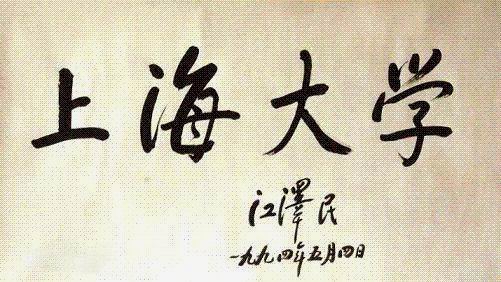 上海大学
江澤民
一九九四年五月四日